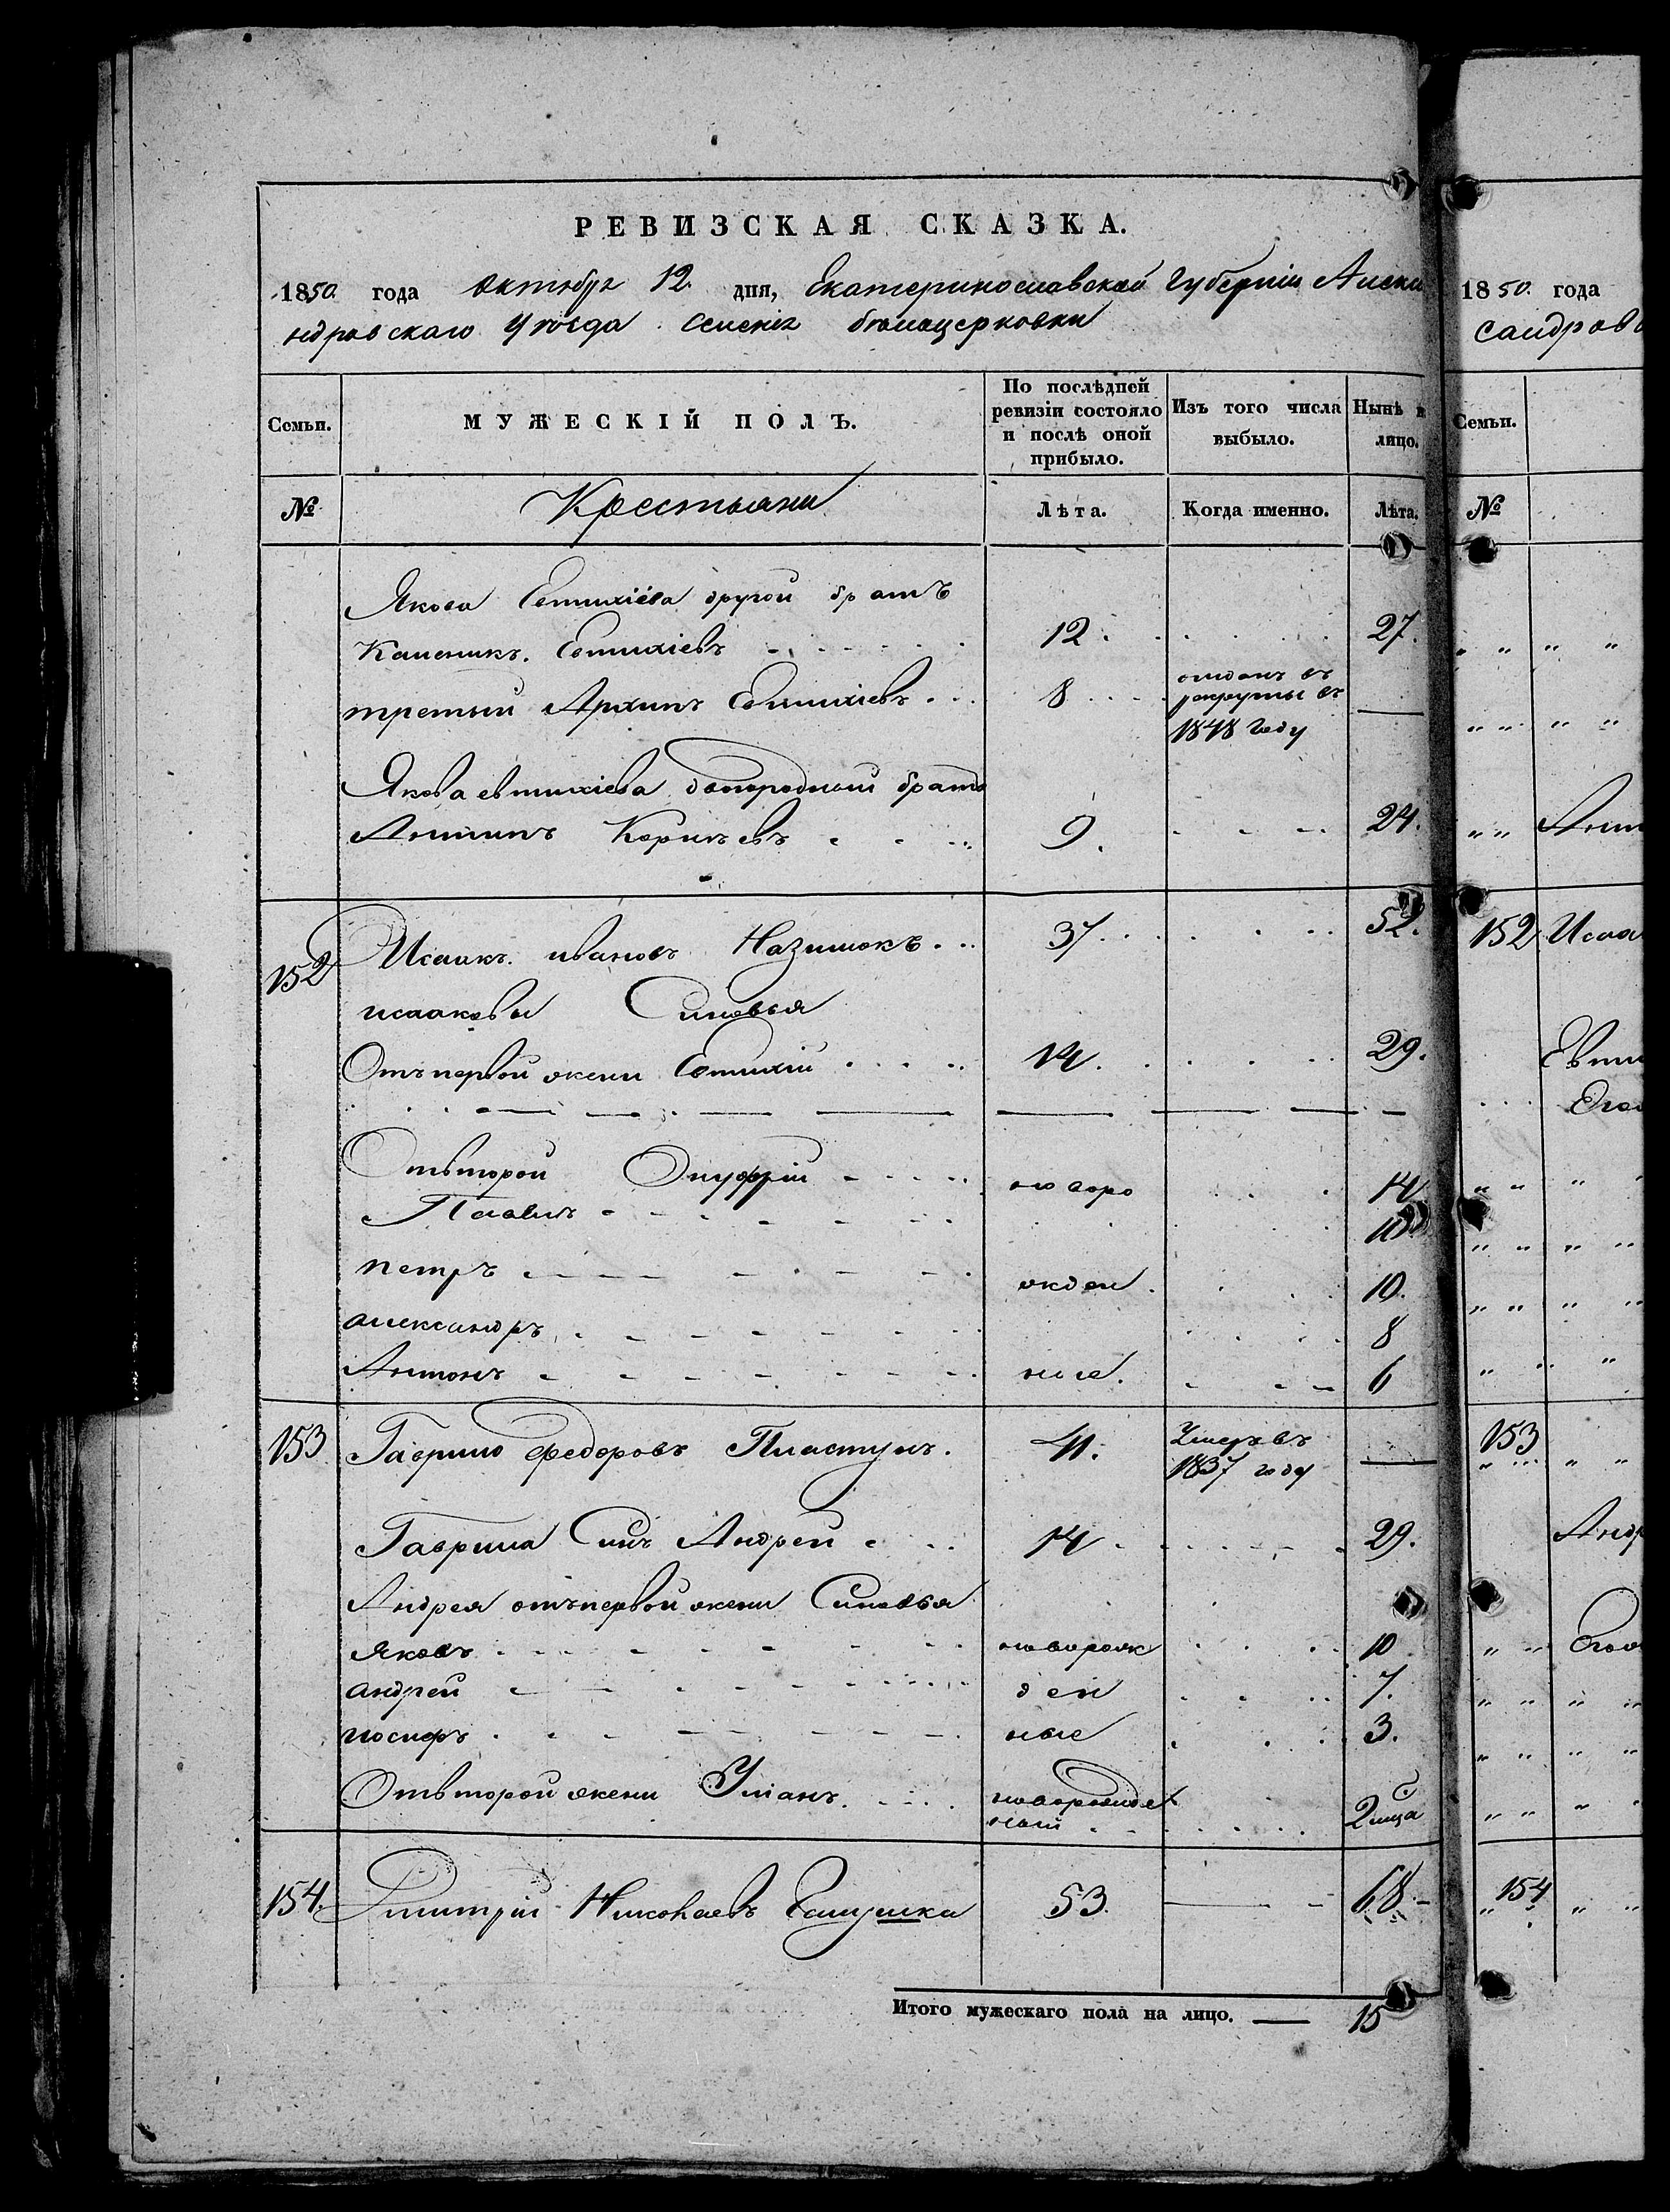 РЕВИЗСКАЯ СКАЗКА.
1850 года октября 12 дня, Екатеринославской Губерніи Алекса
ндровскаго Уѣзда Селенія Бѣлоцерковки
Семьи. МУЖЕСКІЙ ПОЛЪ. По послѣдней ревизіи состояло и послѣ оной прибыло. Изъ того числа выбыло. Нынѣ на лицо.
№ Крестьяни Лѣта. Когда именно. Лѣта.
Якова Евтихіева другой братъ
Каленикъ Евтихіевъ 12 27.
третьій Архипъ Евтихіевъ 8 отданъ въ рекруты въ 1848 году —
Якова евтихіева двоюродный братъ
Антипъ 9. 24.
152 Исаакъ ивановъ Назимокъ 37 52.
исааковы Синовья
Отъпервой жени Евтихій 14. 29.
Отвторой Онуфрій новоро 14
Павелъ 10
петръ жден 10.
александръ 8
Антонъ ные. 6
153 Гаврило федоровъ Пластунъ. 41. Умеръ въ 1837 году —
Гаврила Синъ Андрей 14 29.
Андрея отъпервой жени Синовья
яковъ новорож 10
андрей ден 7.
иосифъ ные 3.
Отвторой жени Уланъ новорожден ный 2 мца
154. Дмитрій Николаевъ 53. — 68
Итого мужескаго пола на лицо. — 15
1850 года
сандров
Семьи.
№
Анти
152 Исаа
Евти
Его
153
Андр
Его
154